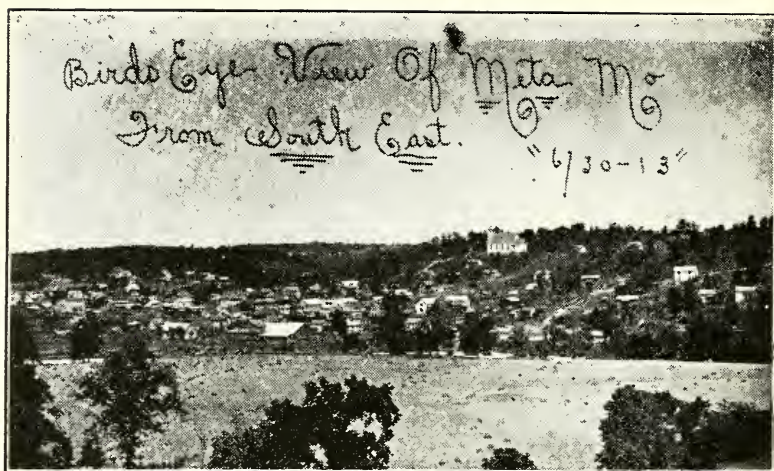 Birds Eye View Of Meta Mo
From South East.
"6/30-13"